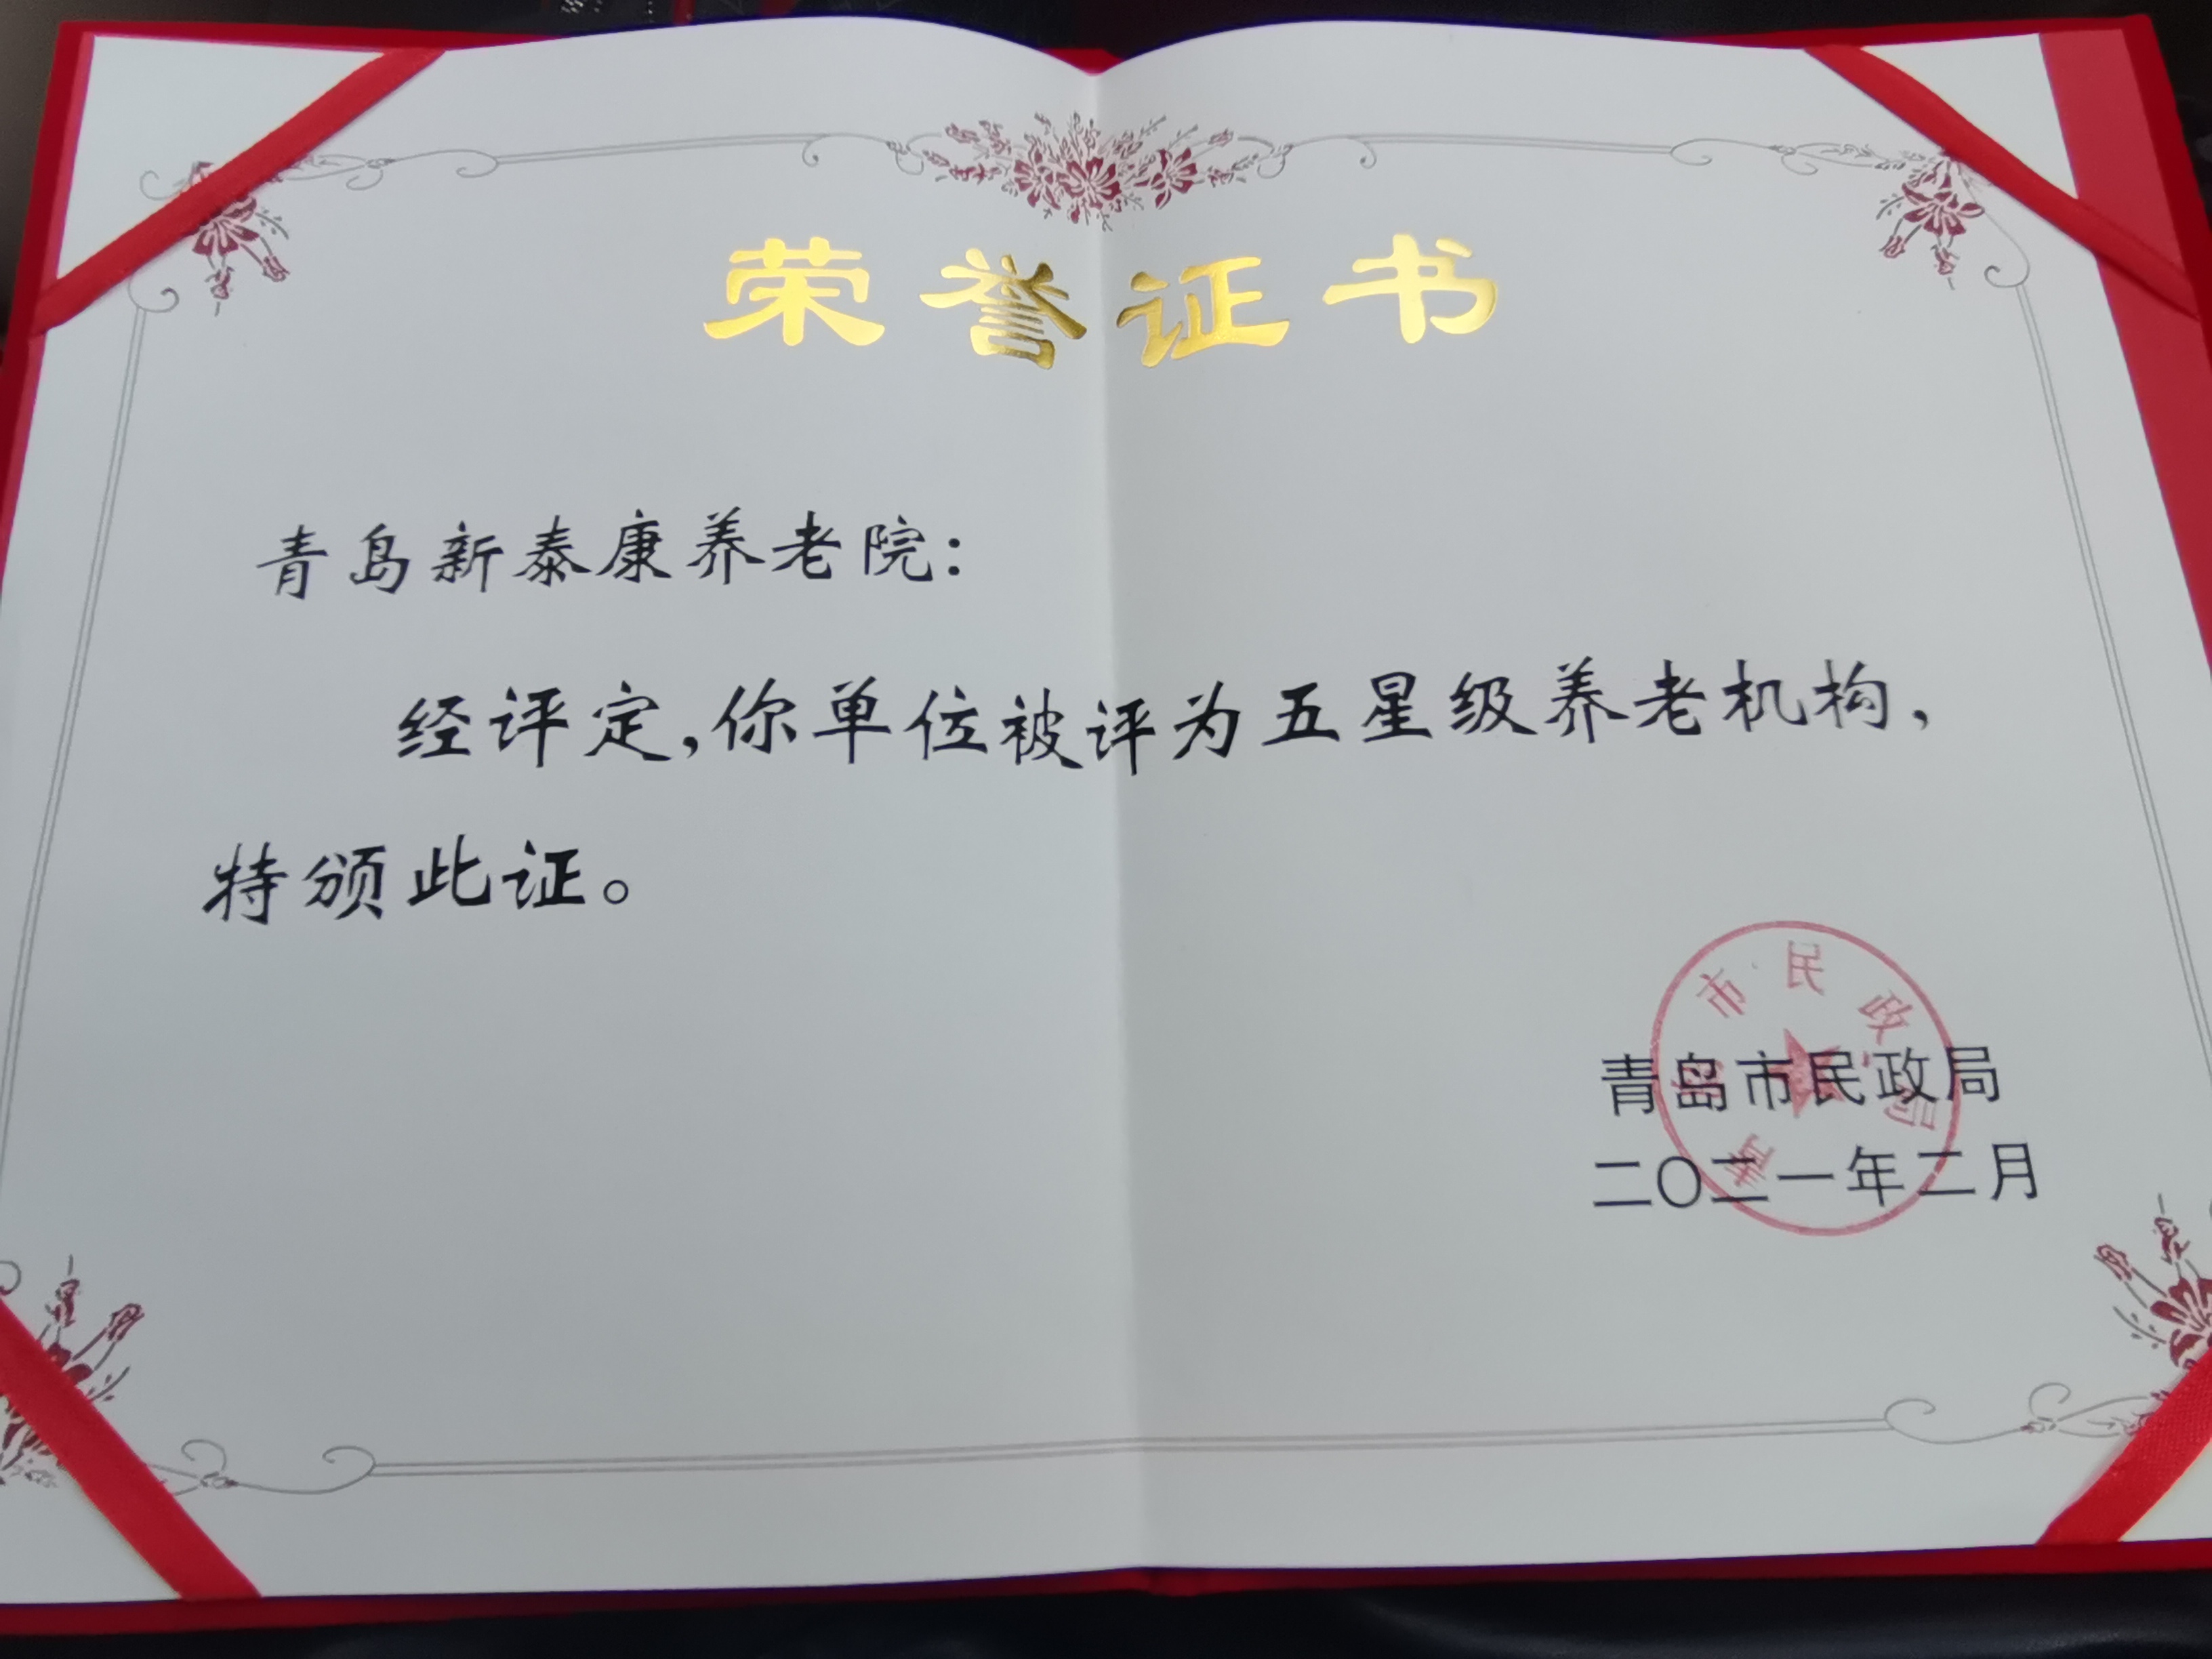 荣誉证书
青岛新泰康养老院：
经评定，你单位被评为五星级养老机构，
特颁此证。
青岛市民政局
青岛市民政局
二〇二一年二月